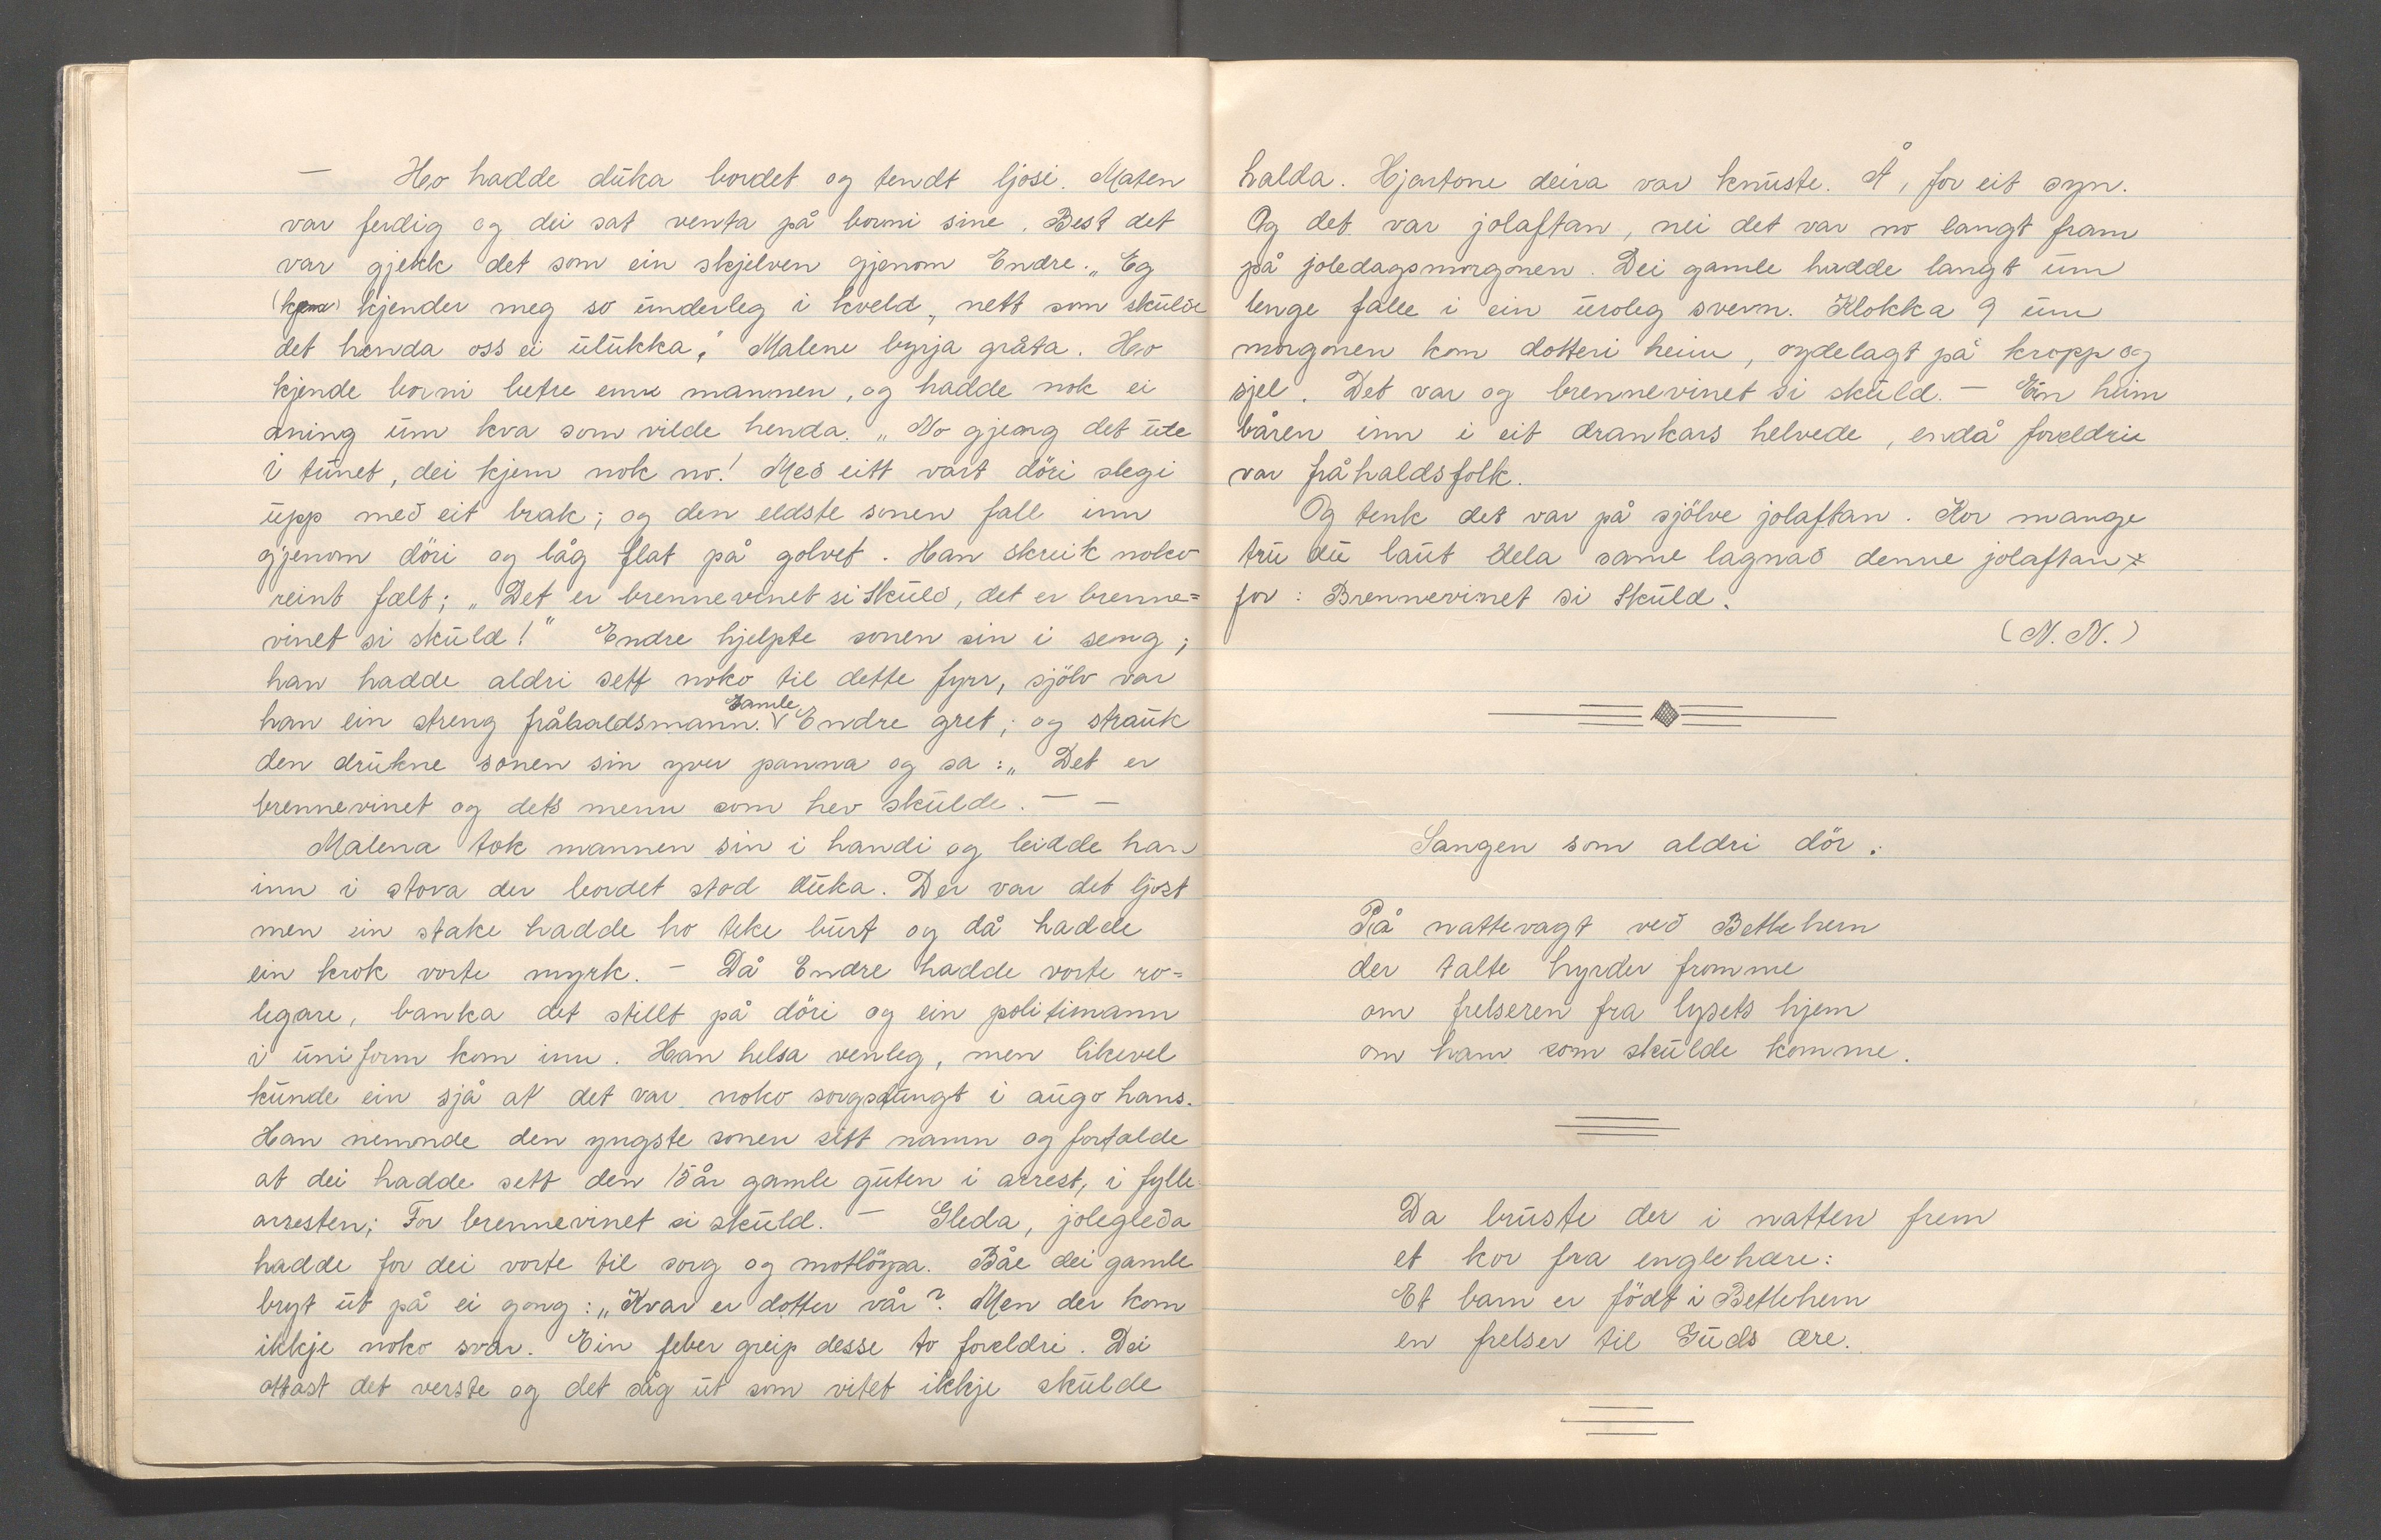 — Ho hadde duka bordet og tendt ljosi. Maten
var ferdig og dei sat venta på borni sine. Best det
var gjekk det som ein skjelven gjenom Endre. „Eg
kjender meg so underleg i kveld, nett som skulde
det henda oss ei ulukka." Malene byrja gråta. Ho
kjende borni betre enn mannen, og hadde nok ei
aning um kva som vilde henda. „No gjeng det ute
i tunet, dei kjem nok no! Med eitt vart döri slegi
upp med eit brak; og den eldste sonen fall inn
gjenom döri og låg flat på golvet. Han skreik noko
reint fælt; „Det er brennevinet si skuld, det er brenne=
vinet si skuld!" Endre hjelpte sonen sin i seng;
han hadde aldri sett noko til dette fyrr, sjölv var
han ein streng fråhaldsmann. Gamle Endre gret; og strauk
den drukne sonen sin yver panna og sa: „Det er
brennevinet og dets menn som hev skulde. — —
Malena tok mannen sin i handi og leidde han
inn i stova der bordet stod duka. Der var det ljost
men ein stake hadde ho teke burt og då hadde
ein krok vorte myrk. — Då Endre hadde vorte ro=
legare, banka det stillt på döri og ein politimann
i uniform kom inn. Han helsa venleg, men likevel
kunde ein sjå at det var noko sorgstungt i augo hans.
Han nemnde den yngste sonen sitt namn og fortalde
at dei hadde sett den 15 år gamle guten i arrest, i fylle-
arresten; For brennevinet si skuld. — Gleda, jolegleda
hadde for dei vorte til sorg og motlöysa. Båe dei gamle
bryt ut på ei gong: „Kvar er dotter vår? Men der kom
ikkje noko svar. Ein feber greip desse to foreldri. Dei
ottast det verste og det såg ut som vitet ikkje skulde
halda. Hjartone deira var knuste. Å, for eit syn.
Og det var jolaftan, nei det var no langt fram
på joledagsmorgonen. Dei gamle hadde langt um
lenge falle i ein uroleg svevn. Klokka 9 um
morgonen kom dotteri heim, oydelagt på kropp og
sjel. Det var og brennevinet si skuld. — Ein heim
båren inn i eit drankars helvede, endå foreldrie
var fråhaldsfolk.
Og tenk det var på sjölve jolaftan. Kor mange
tru du laut dela same lagnad denne jolaftan
for: Brennevinet si skuld.
(N. N.)
Sangen som aldri dör.
På nattevagt ved Betlehem
der talte hyrder fromme
om frelseren fra lysets hjem
om ham som skulde komme.
Da bruste der i natten frem
et kor fra englehære:
Et barn er födt i Betlehem
en frelser til Guds ære.